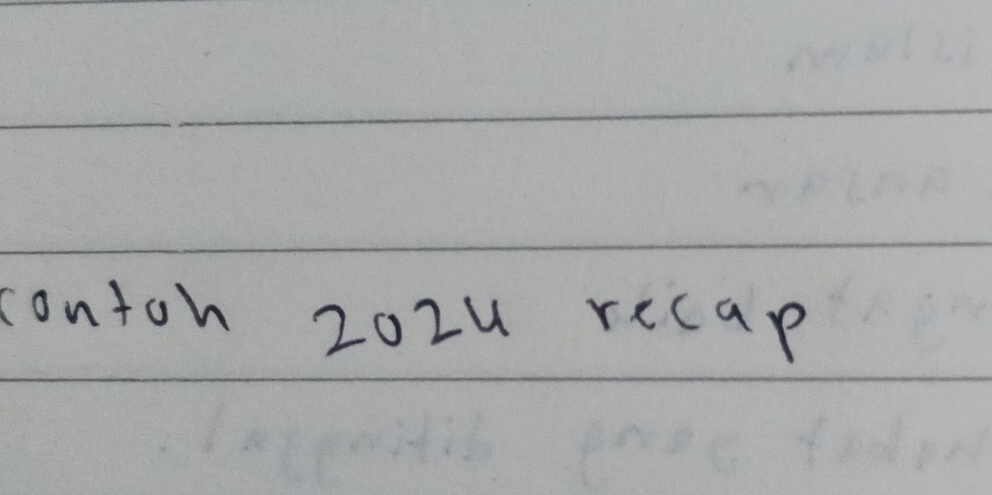 contoh 2024 recap